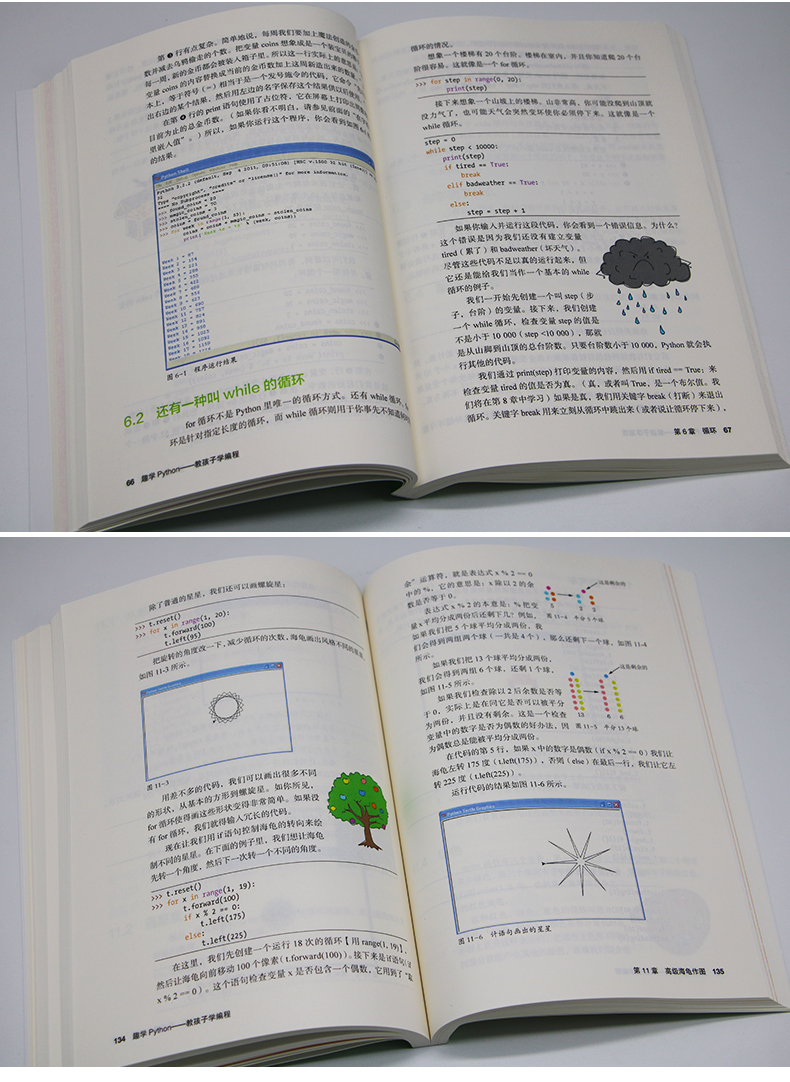 第❹行有点复杂。简单地说，每周我们要加上魔法创造的金
数并减去乌鸦偷走的个数。把变量 coins 想象成是一个装宝贝的箱
每一周，新的金币都会被装入箱子里。所以这一行实际上的意思是
变量 coins 的内容替换成当前的金币数加上这周新造出来的数量
本上，等于符号（=）相当于是一个发号施令的代码，它命令
出右边的某个结果，然后用左边的名字保存这个结果供以后使用
在第❺行的 print 语句使用了占位符，它在屏幕上打印出
目前为止的总金币数。（如果你看不明白，请参见前面的“在字
里嵌入值”。）所以，如果你运行这个程序，你会看到如图 6-
的结果。
Python Shell
Python 3.2.2 (default, Sep 4 2011, 09:51:08) [MSC v.1500 32 bit (Intel)]
32
Type "copyright", "credits" or "license()" for more information.
==== No Subprocess ====
>>> found_coins = 20
>>> magic_coins = 70
>>> stolen_coins = 3
>>> coins = found_coins
>>> for week in range(1, 53):
coins = coins + magic_coins - stolen_coins
print('Week %s = %s' % (week, coins))
Week 1 = 87
Week 2 = 154
Week 3 = 221
Week 4 = 288
Week 5 = 355
Week 6 = 422
Week 7 = 489
Week 8 = 556
Week 9 = 623
Week 10 = 690
Week 11 = 757
Week 12 = 824
Week 13 = 891
Week 14 = 958
Week 15 = 1025
Week 16 = 1092
Week 17 = 1159
图 6-1 程序运行结果
6.2 还有一种叫 while 的循环
for 循环不是 Python 里唯一的循环方式。还有 while 循环。
环是针对指定长度的循环，而 while 循环则用于你事先不知道何时
66 趣学 Python——教孩子学编程
循环的情况。
想象一个楼梯有 20 个台阶。楼梯在室内，并且你知道爬 20 个台
阶很容易。这就像是一个 for 循环。
>>> for step in range(0, 20):
print(step)
接下来想象一个山坡上的楼梯。山非常高，你可能没爬到山顶就
没力气了，也可能天气会突然变坏使你必须停下来。这就像是一个
while 循环。
step = 0
while step < 10000:
print(step)
if tired == True:
break
elif badweather == True:
break
else:
step = step + 1
如果你输入并运行这段代码，你会看到一个错误信息。为什么？
这个错误是因为我们还没有建立变量
tired（累了）和 badweather（坏天气）。
尽管这些代码不足以真的运行起来，但
它还是能给我们当作一个基本的 while
循环的例子。
我们一开始先创建一个叫 step（步
子，台阶）的变量。接下来，我们创建
一个 while 循环，检查变量 step 的值是
不是小于 10 000（step <10 000）。那就
是从山脚到山顶的总台阶数。只要台阶数小于 10 000，Python 就会执
行其他的代码。
我们通过 print(step) 打印变量的内容，然后用 if tired == True：来
检查变量 tired 的值是否为真。（真，或者叫 True，是一个布尔值。我
们将在第 8 章中学习）如果是真，我们用关键字 break（打断）来退出
循环。关键字 break 用来立刻从循环中跳出来（或者设计循环停下来），
第 6 章 循环 67
除了普通的星星，我们还可以画螺旋星：
>>> t.reset()
>>> for x in range(1, 20):
t.forward(100)
t.left(95)
把旋转的角度改一下，减少循环的次数，海龟画出风格不同的星星，
如图 11-3 所示。
图 11-3
用差不多的代码，我们可以画出很多不同
的形状，从基本的方形到螺旋星。如你所见，
for 循环使得画这些形状变得非常简单。如果没
有 for 循环，我们就得输入冗长的代码。
现在让我们用 if 语句控制海龟的转向来绘
制不同的星星。在下面的例子里，我们想让海龟
先转一个角度，然后下一次转一个不同的角度。
>>> t.reset()
>>> for x in range(1, 19):
t.forward(100)
if x % 2 == 0:
t.left(175)
else:
t.left(225)
在这里，我们先创建一个运行 18 次的循环【用 range(1, 19)】，
然后让海龟向前移动 100 个像素（t.forward(100)）。接下来是 if 语句（if
x % 2 == 0）。这个语句检查变量 x 是否包含一个偶数，它用到了“取
134 趣学 Python——教孩子学编程
余”运算符，就是表达式 x % 2 == 0
中的 %，它的意思是：x 除以 2 的余
数是否等于 0。
表达式 x % 2 的本意是：% 把变
量 x 平均分成两份后还剩下几？例如，
如果我们把 5 个球平均分成两份，我
们会得到两组两个球（一共是 4 个），那么还剩下一个球，如图 11-4
所示。
这是剩余的
5 2 2
图 11-4 平分 5 个球
如果我们把 13 个球平均分成两份，
我们会得到两组 6 个球，还剩 1 个球，
如图 11-5 所示。
如果我们检查除以 2 后余数是否等
于 0，实际上是在问它是否可以被平分
为两份，并且没有剩余。这是一个检查
变量中的数字是否为偶数的好办法，因
为偶数总是能被平均分成两份。
这是剩余的
13 6 6
图 11-5 平分 13 个球
在代码的第 5 行，如果 x 中的数字是偶数（if x % 2 == 0）我们让
海龟左转 175 度（t.left(175)），否则（else）在最后一行，我们让它左
转 225 度（t.left(225)）。
运行代码的结果如图 11-6 所示。
Python Turtle Graphics
图 11-6 计语句画出的星星
第 11 章 高级海龟作图 135